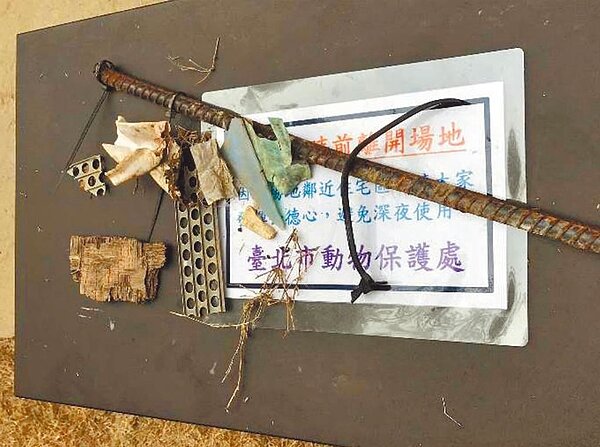 前離開場地
因 地鄰近住宅區 大家
德心，避免深夜使用
臺北市動物保護處